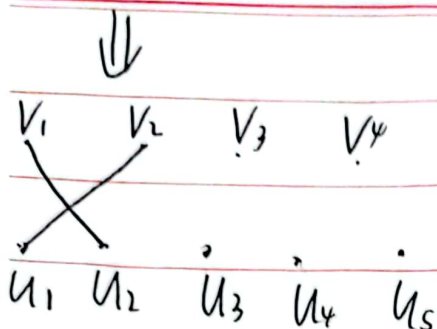 V1 V2 V3 V4
U1 U2 U3 U4 U5